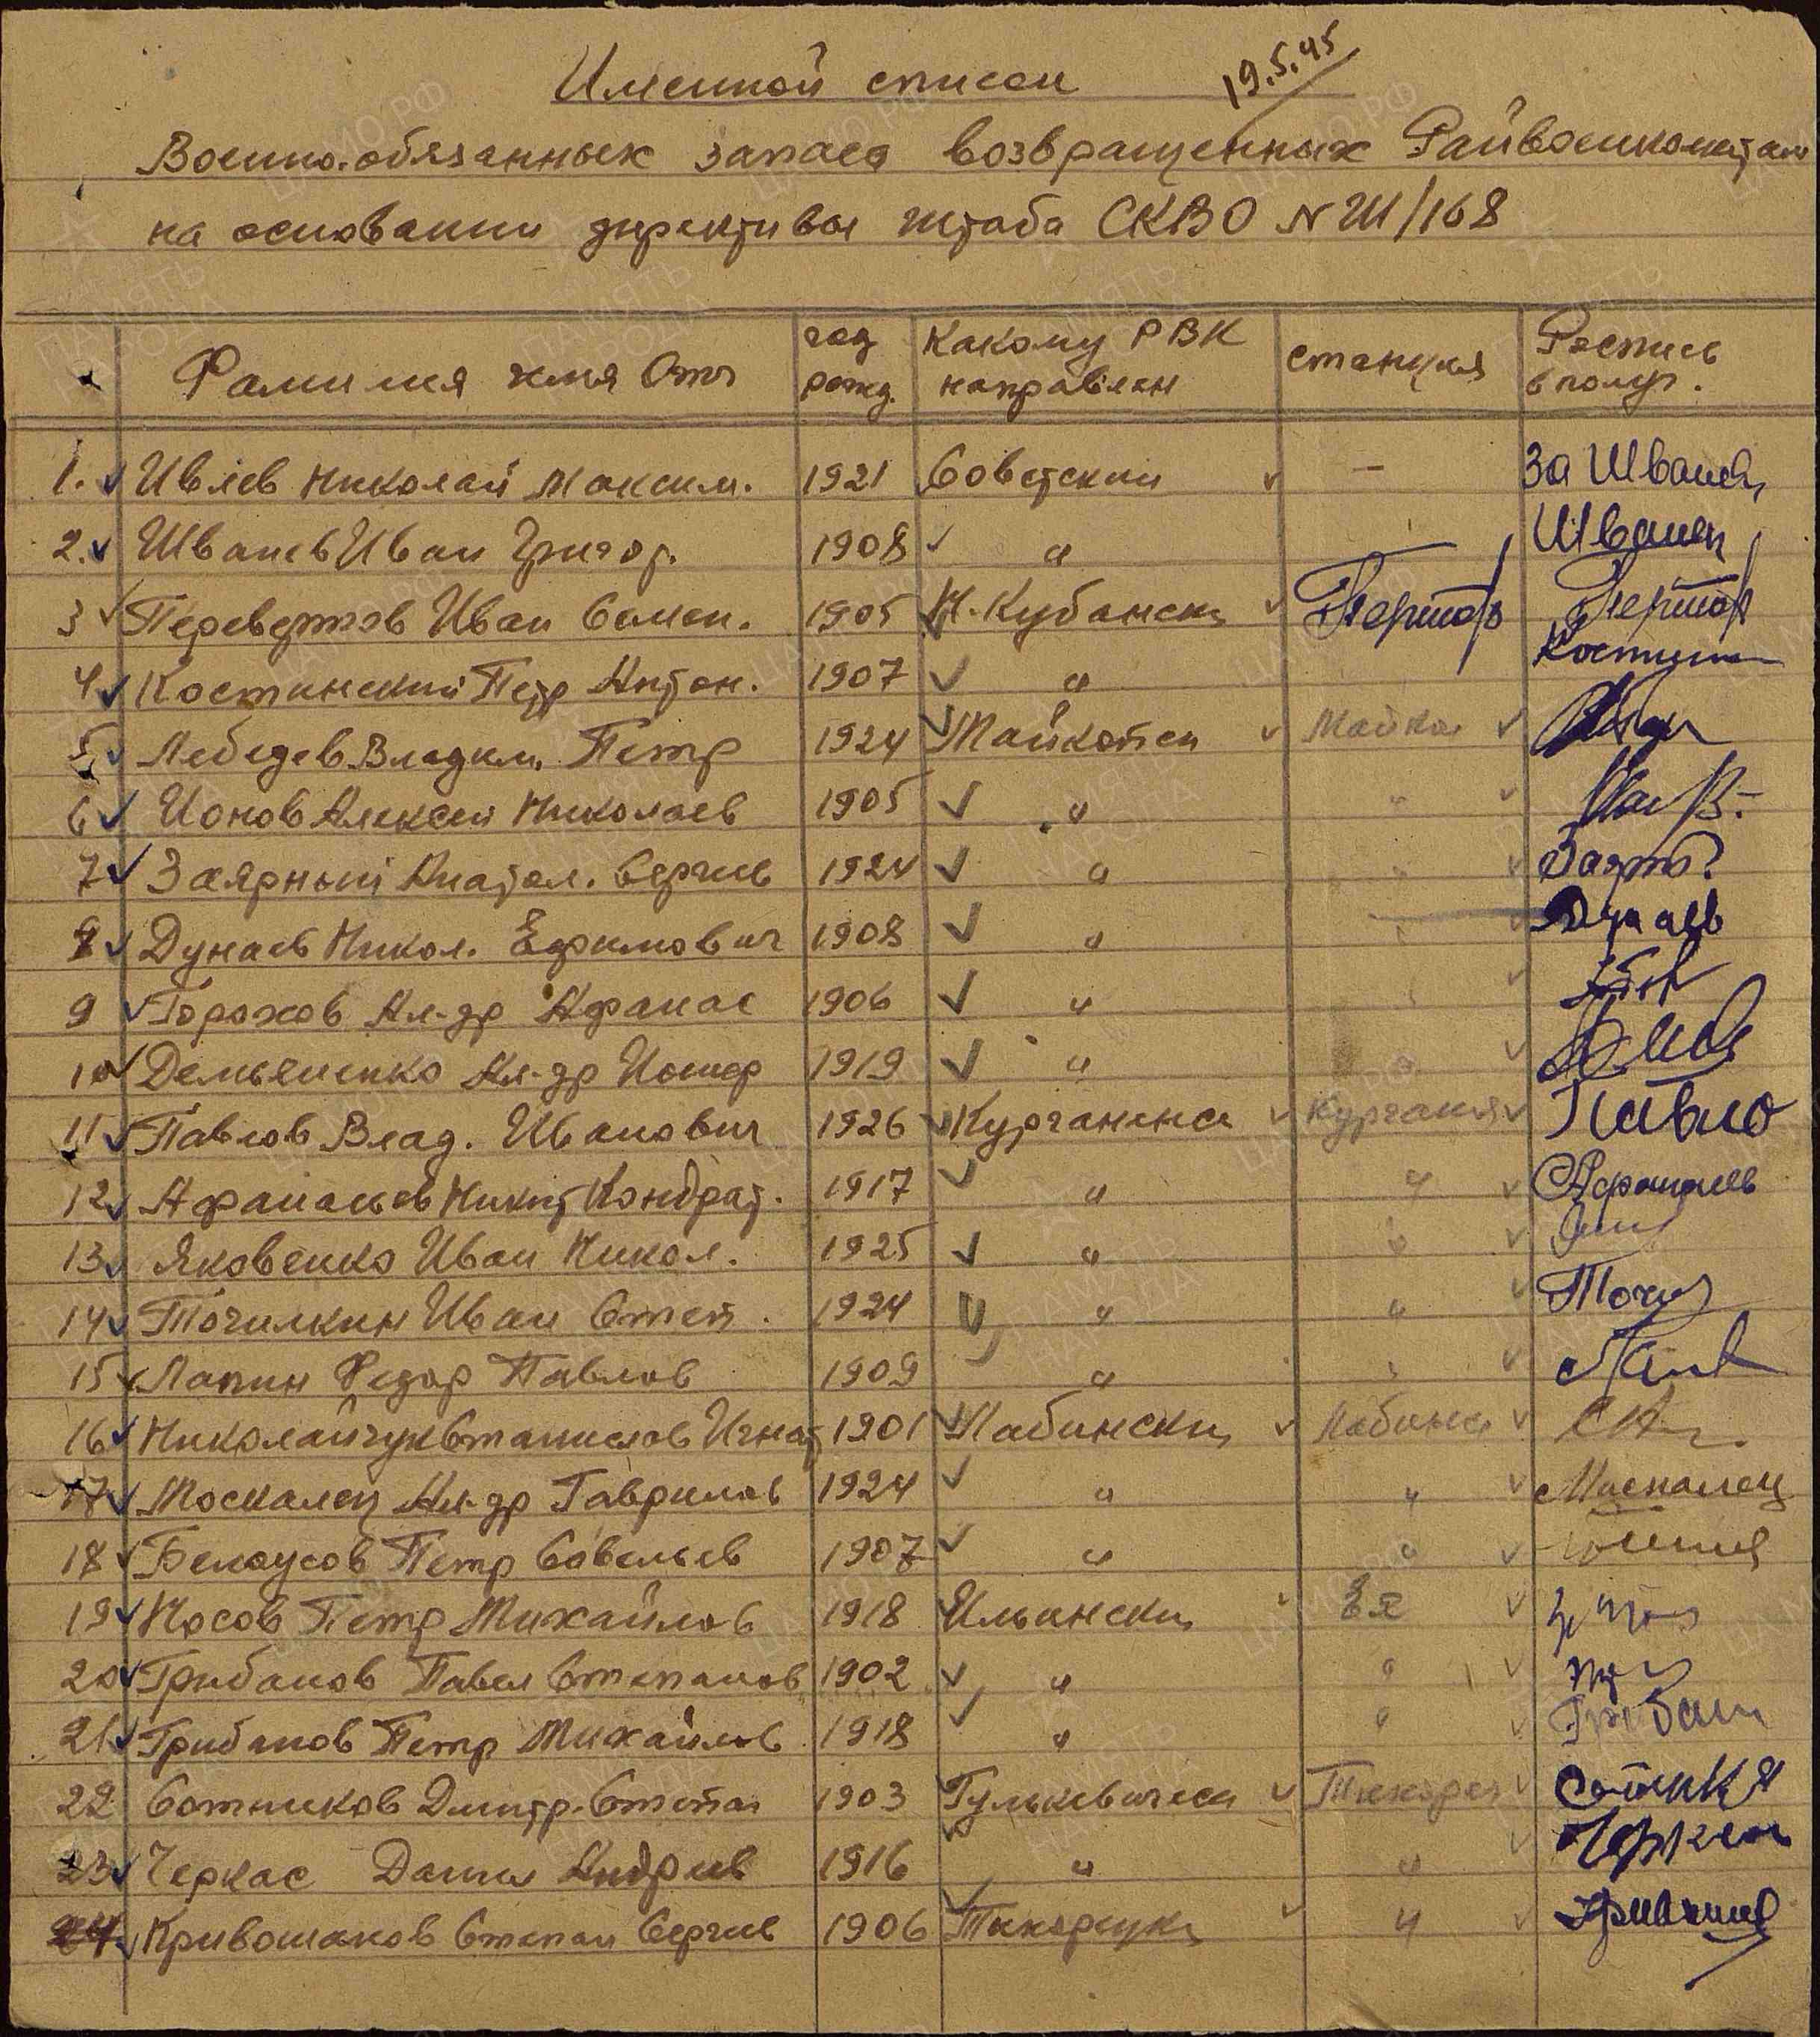 Именной список
19.5.45
Военно.обязанных запаса возвращенных Райвоенкоматам
на основании директивы штаба СКВО № Ш/168
Фамилия имя Отч год рожд. Какому РВК направлен станция Роспись в получ.
1. Ивлев Николай Максим. 1921 Советский — За Швачев
2. Швачев Иван Григор. 1908 "
3 Перевертов Иван Семен. 1905 Н.-Кубански
4 Костинский Петр Антон. 1907 "
5 Лебедев Владим. Петр 1924 Майкопск Майкоп
6 Ионов Алексей Николаев 1905 " "
7 Заярный Анатол. Сергеев 1924 " "
8 Дунаев Никол. Ефимович 1908 " " Дунаев
9 Горохов Ал-др Афанас 1906 " "
10 Демьяненко Ал-др 1919 " "
11 Павлов Влад. Иванович 1926 Курганинс Курганая Павло
12 Афанасьев Никит Кондрат. 1917 " "
13 Яковенко Иван Никол. 1925 " "
14 Точилкин Иван Степ. 1924 " "
15 Лапин Федор Павлов 1909 " "
16 Николайчук Станислав Игнат 1901 Лабински Лабинс
17 Москалец Ал-др Гаврилов 1924 " " Москалец
18 Белоусов Петр Савельев 1907 " "
19 Носов Петр Михайлов 1918 Ильински Ея
20 Грибанов Павел Степанов 1902 " "
21 Грибанов Петр Михайлов 1918 " " Грибан
22 Сотников Дмитр. Степан 1903 Гулькевическ Тихорец
23 Черкас Данил Андреев 1916 " "
24 Кривошаков Степан Сергеев 1906 Тихорецки "